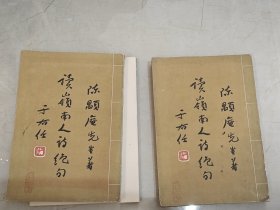 陈颙庵先生著
读岭南人诗绝句
于右任
陈颙庵先生著
读岭南人诗绝句
于右任